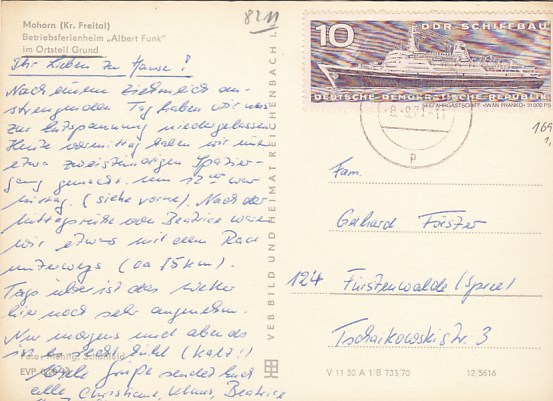 Mohorn (Kr. Freital)
Betriebsferienheim „Albert Funk"
im Ortsteil Grund
8211
Ihr Lieben zu Hause!
Nach einem ziemlich an-
strengenden Tag haben wir uns
zur Entspannung niedergelassen.
Heute vormittag haben wir einen
etwa zweistündigen Spazier-
gang gemacht. Um 12 war
Mittag. (siehe vorne). Nach der
Mittagsruhe von Beatrice waren
wir etwas mit dem Rad
unterwegs (ca 15 km).
Tags über ist das Wetter
hier noch sehr angenehm.
Nur morgens und abends
ist es recht kühl (kalt!)
Viele Grüße sendet Euch
alle, Christiane, Klaus, Beatrice
EVP
VEB BILD UND HEIMAT REICHENBACH I.
10
DDR-SCHIFFBAU
DEUTSCHE DEMOKRATISCHE REPUBLIK
FAHRGASTSCHIFF »IWAN FRANKO« 21000 PS
p
169
1,
Fam.
Gerhard Förster
124 Fürstenwalde/Spree
Tschaikowskistr. 3
V 11 50 A 1/B 733/70
12/5616